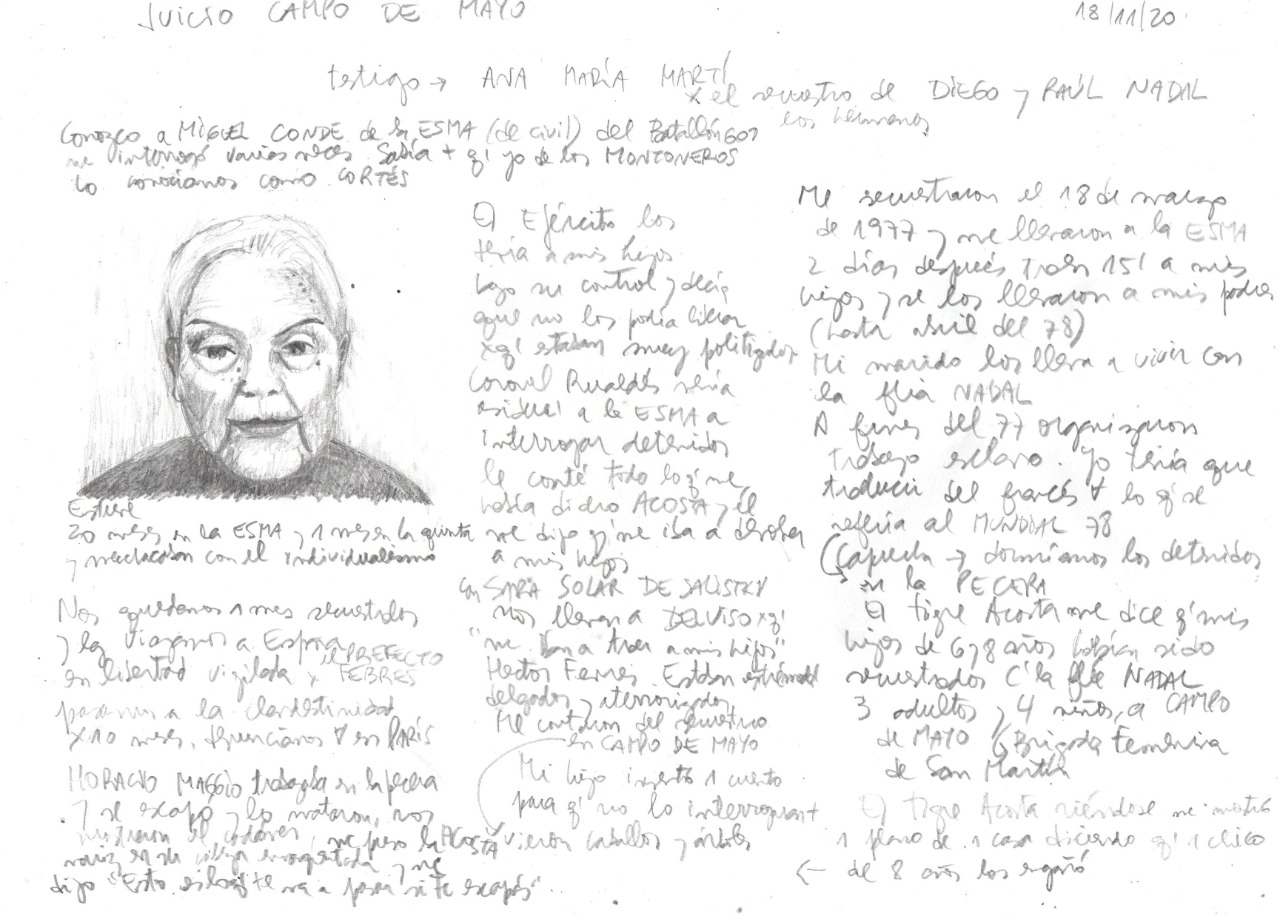 JUICIO CAMPO DE MAYO
18/11/20
testigo → ANA MARÍA MARTÍ
x el secuestro de DIEGO y RAÚL NADAL
los hermanos
Conozco a MIGUEL CONDE de la ESMA (de civil) del Batallón 601
me interrogó varias veces. Sabía + q' yo de los MONTONEROS
Lo conocíamos como CORTÉS
Estuve
20 meses en la ESMA y 1 mes en la quinta
y machacaban con el individualismo
Nos quedamos 1 mes secuestrados
y lg viajamos a España
en libertad vigilada x el PREFECTO FEBRES
pasamos a la clandestinidad
x 10 meses, denunciamos en PARÍS
HORACIO MAGGIO trabajaba en la pecera
y se escapó y lo mataron, nos
mostraron el cadáver, me puso la ACOSTA
nariz en su
dijo "Esto es lo q' te va a pasar si te escapás"
El Ejército los
tenía a mis hijos
bajo su control y decía
que no los podía liberar
xq' estaban muy politizados
Coronel Rualdés venía
a la ESMA a
interrogar detenidos
le conté todo lo q' me
había dicho ACOSTA y él
me dijo q' me iba a devolver
a mis hijos
con SARA SOLAR DE
nos llevan a DEL VISO xq'
"me iban a traer a mis hijos"
Hector Ferres. Estaban
delgados y aterrorizados
Me contaron del secuestro
en CAMPO DE MAYO
Mi hijo inventó 1 cuento
para q' no lo interroguen +
vieron caballos y árboles
Me secuestraron el 18 de marzo
de 1977 y me llevaron a la ESMA
2 días después traen 15' a mis
hijos y se los llevaron a mis padres
(hasta abril del 78)
Mi marido los lleva a vivir con
la flia NADAL
A fines del 77 organizaron
trabajo esclavo. Yo tenía que
traducir del francés lo q' se
refería al MUNDIAL 78
(Capucha → dormíamos los detenidos
en la PECERA
El Tigre Acosta me dice q' mis
hijos de 6 y 8 años habían sido
secuestrados c' la flia NADAL
3 adultos y 4 niños, a CAMPO
de MAYO Brigada Femenina
de San Martín
El Tigre Acosta riéndose me mostró
1 plano de 1 casa diciendo q' 1 chico
← de 8 años los engañó